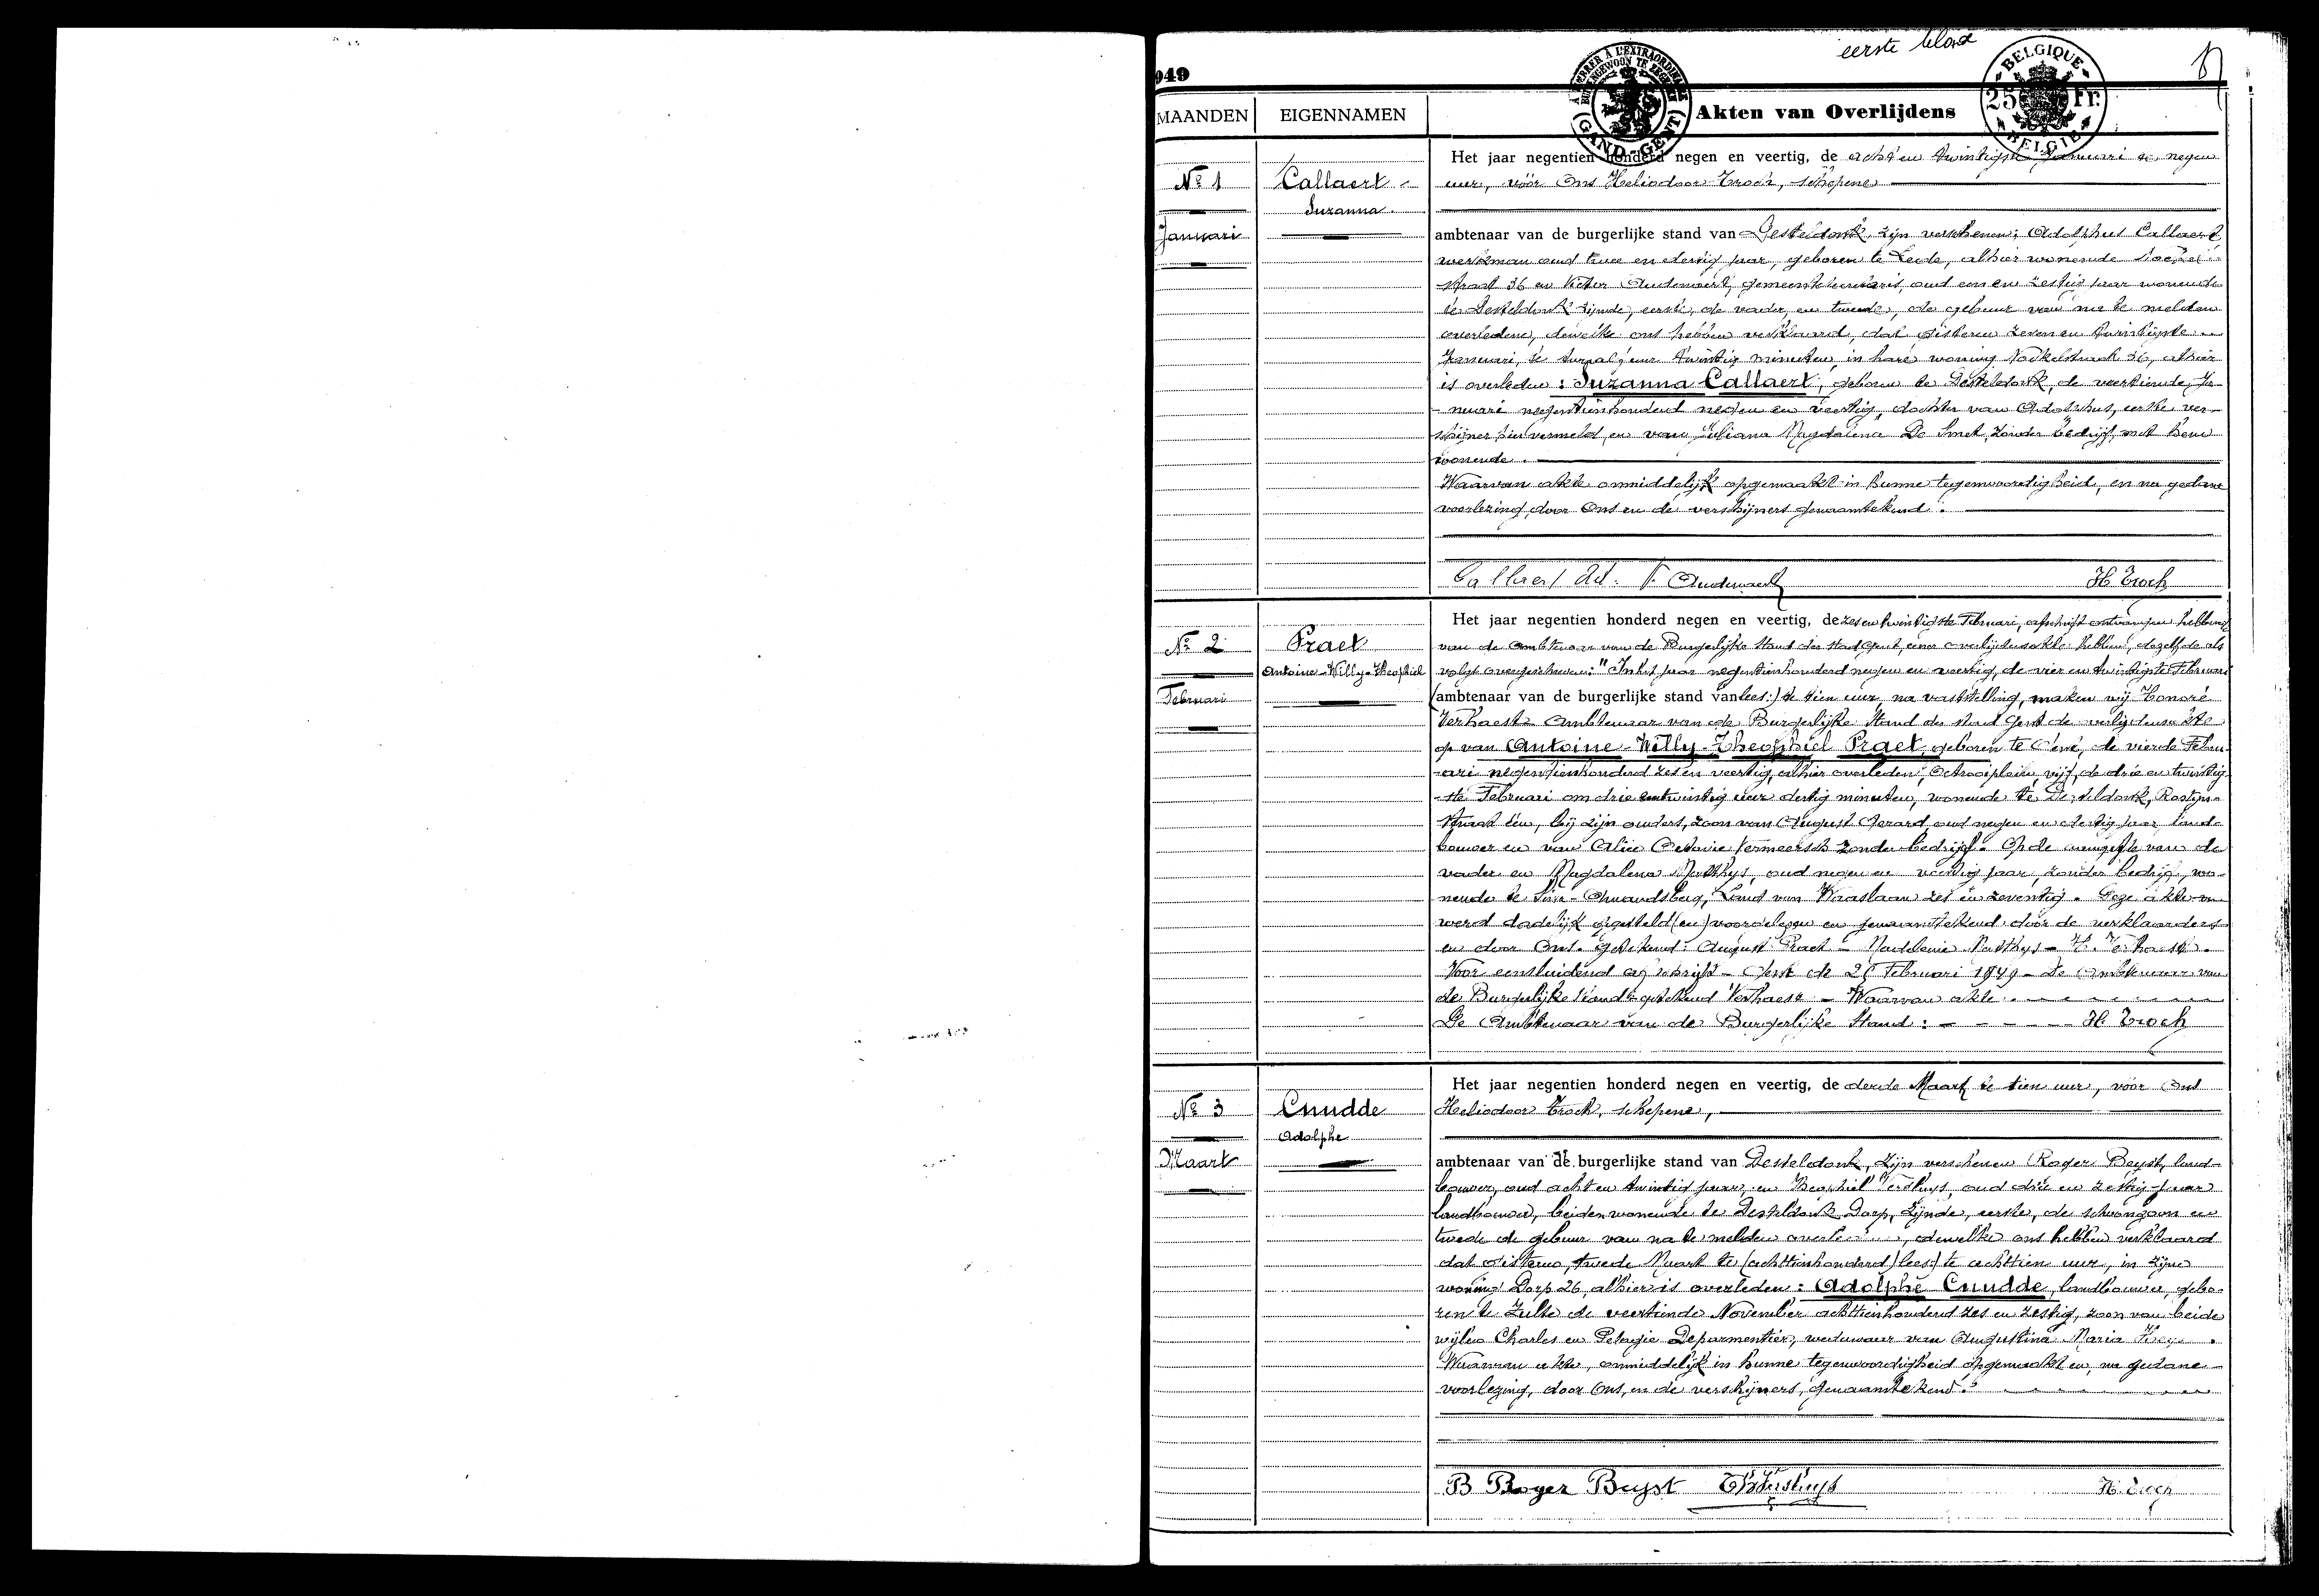 eerste blad
949
À TIMBRER À L'EXTRAORDINAIRE
BUITENGEWOON TE ZEGELEN
(GAND-GENT)
BELGIQUE
25 Fr.
BELGIE
MAANDEN EIGENNAMEN Akten van Overlijdens
Nº 1
Januari
Callaert
Suzanna
Het jaar negentien honderd negen en veertig, de acht en twintigste Januari te negen
uur, vóór Ons Heliodoor Troch, schepene
ambtenaar van de burgerlijke stand van Desteldonk, zijn verschenen: Adolphus Callaert
werkman oud twee en dertig jaar, geboren te Lede, alhier wonende
straat 36 en Victor Audenaert, gemeentesecretaris, oud een en zestig jaar wonende
te Desteldonk zijnde, eerste, de vader, en tweede, de gebuur van na te melden
overledene, dewelke ons hebben verklaard, dat gisteren zeven en twintigste
Januari, te twaalf uur twintig minuten, in hare woning straat 36, alhier
is overleden: Suzanna Callaert, geboren te Desteldonk, de veertiende Ja-
nuari negentienhonderd negen en veertig, dochter van Adolphus, eerste ver-
schijner hiervermeld, en van Juliana Magdalena De Smet, zonder bedrijf, met hem
wonende.
Waarvan akte onmiddelijk opgemaakt in hunne tegenwoordigheid, en na gedane
voorlezing door Ons en de verschijners genaamtekend.
Callaert Ad. V. Audenaert H Troch
Nº 2
Februari
Praet
Antoine-Willy-Theophiel
Het jaar negentien honderd negen en veertig, de zes en twintigste Februari, afschrift ontvangen hebbend
van de Ambtenaar van de Burgerlijke Stand der stad Gent, eener overlijdensakte hebben, dezelfde als
volgt overgeschreven: "In het jaar negentienhonderd negen en veertig, de vier en twintigste Februari
(ambtenaar van de burgerlijke stand van lees:) te tien uur, na vaststelling, maken wij Honoré
Verhaest Ambtenaar van de Burgerlijke Stand der stad Gent de overlijdensakte
op van Antoine-Willy-Theophiel Praet, geboren te Gent, de vierde Febru-
ari negentienhonderd zes en veertig, alhier overleden, Octrooiplein, vijf, de drie en twintig
ste Februari om drie entwintig uur dertig minuten, wonende te Desteldonk,
straat één, bij zijn ouders, zoon van August Gerard, oud negen en dertig jaar, land-
bouwer en van Alice Octavie Vermeersch zonder bedrijf. Op de aangifte van de
vader en Magdalena Matthys, oud negen en veertig jaar, zonder bedrijf, wo-
nende te Sint-Amandsberg, Land van Waaslaan zes en zeventig. Deze akte
werd dadelijk opgesteld (en) voorgelezen en genaamtekend door de verklaarders
en door Ons. Getekend: August Praet - Madeleine Matthys - H. Verhaest.
Voor eensluidend afschrift - Gent de 26 Februari 1949 - De Ambtenaar van
de Burgerlijke Stand: getekend Verhaest - Waarvan akte.
De Ambtenaar van de Burgerlijke Stand: - - - - H. Troch
Nº 3
Maart
Cnudde
Adolphe
Het jaar negentien honderd negen en veertig, de derde Maart te tien uur, vóór Ons
Heliodoor Troch, schepene,
ambtenaar van de burgerlijke stand van Desteldonk, zijn verschenen Roger Buyst, land-
bouwer, oud acht en twintig jaar, en Theophiel Versluys, oud drie en zestig jaar
landbouwer, beiden wonende te Desteldonk Dorp, zijnde, eerste, de schoonzoon en
twede de gebuur van na te melden overledene, dewelke ons hebben verklaard
dat gisteren, tweede Maart te (achttienhonderd) lees:) te achttien uur, in zijne
woning Dorp 26, alhier is overleden: Adolphe Cnudde, landbouwer, gebo-
ren te Zulte de veertiende November achttienhonderd zes en zestig, zoon van beide
wijlen Charles en Pelagie Deparmentier, weduwaar van Augustina Maria
Waarvan akte, onmiddelijk in hunne tegenwoordigheid opgemaakt en, na gedane
voorlezing, door Ons, en de verschijners, genaamtekend.
B Roger Buyst Th Versluys H. Troch